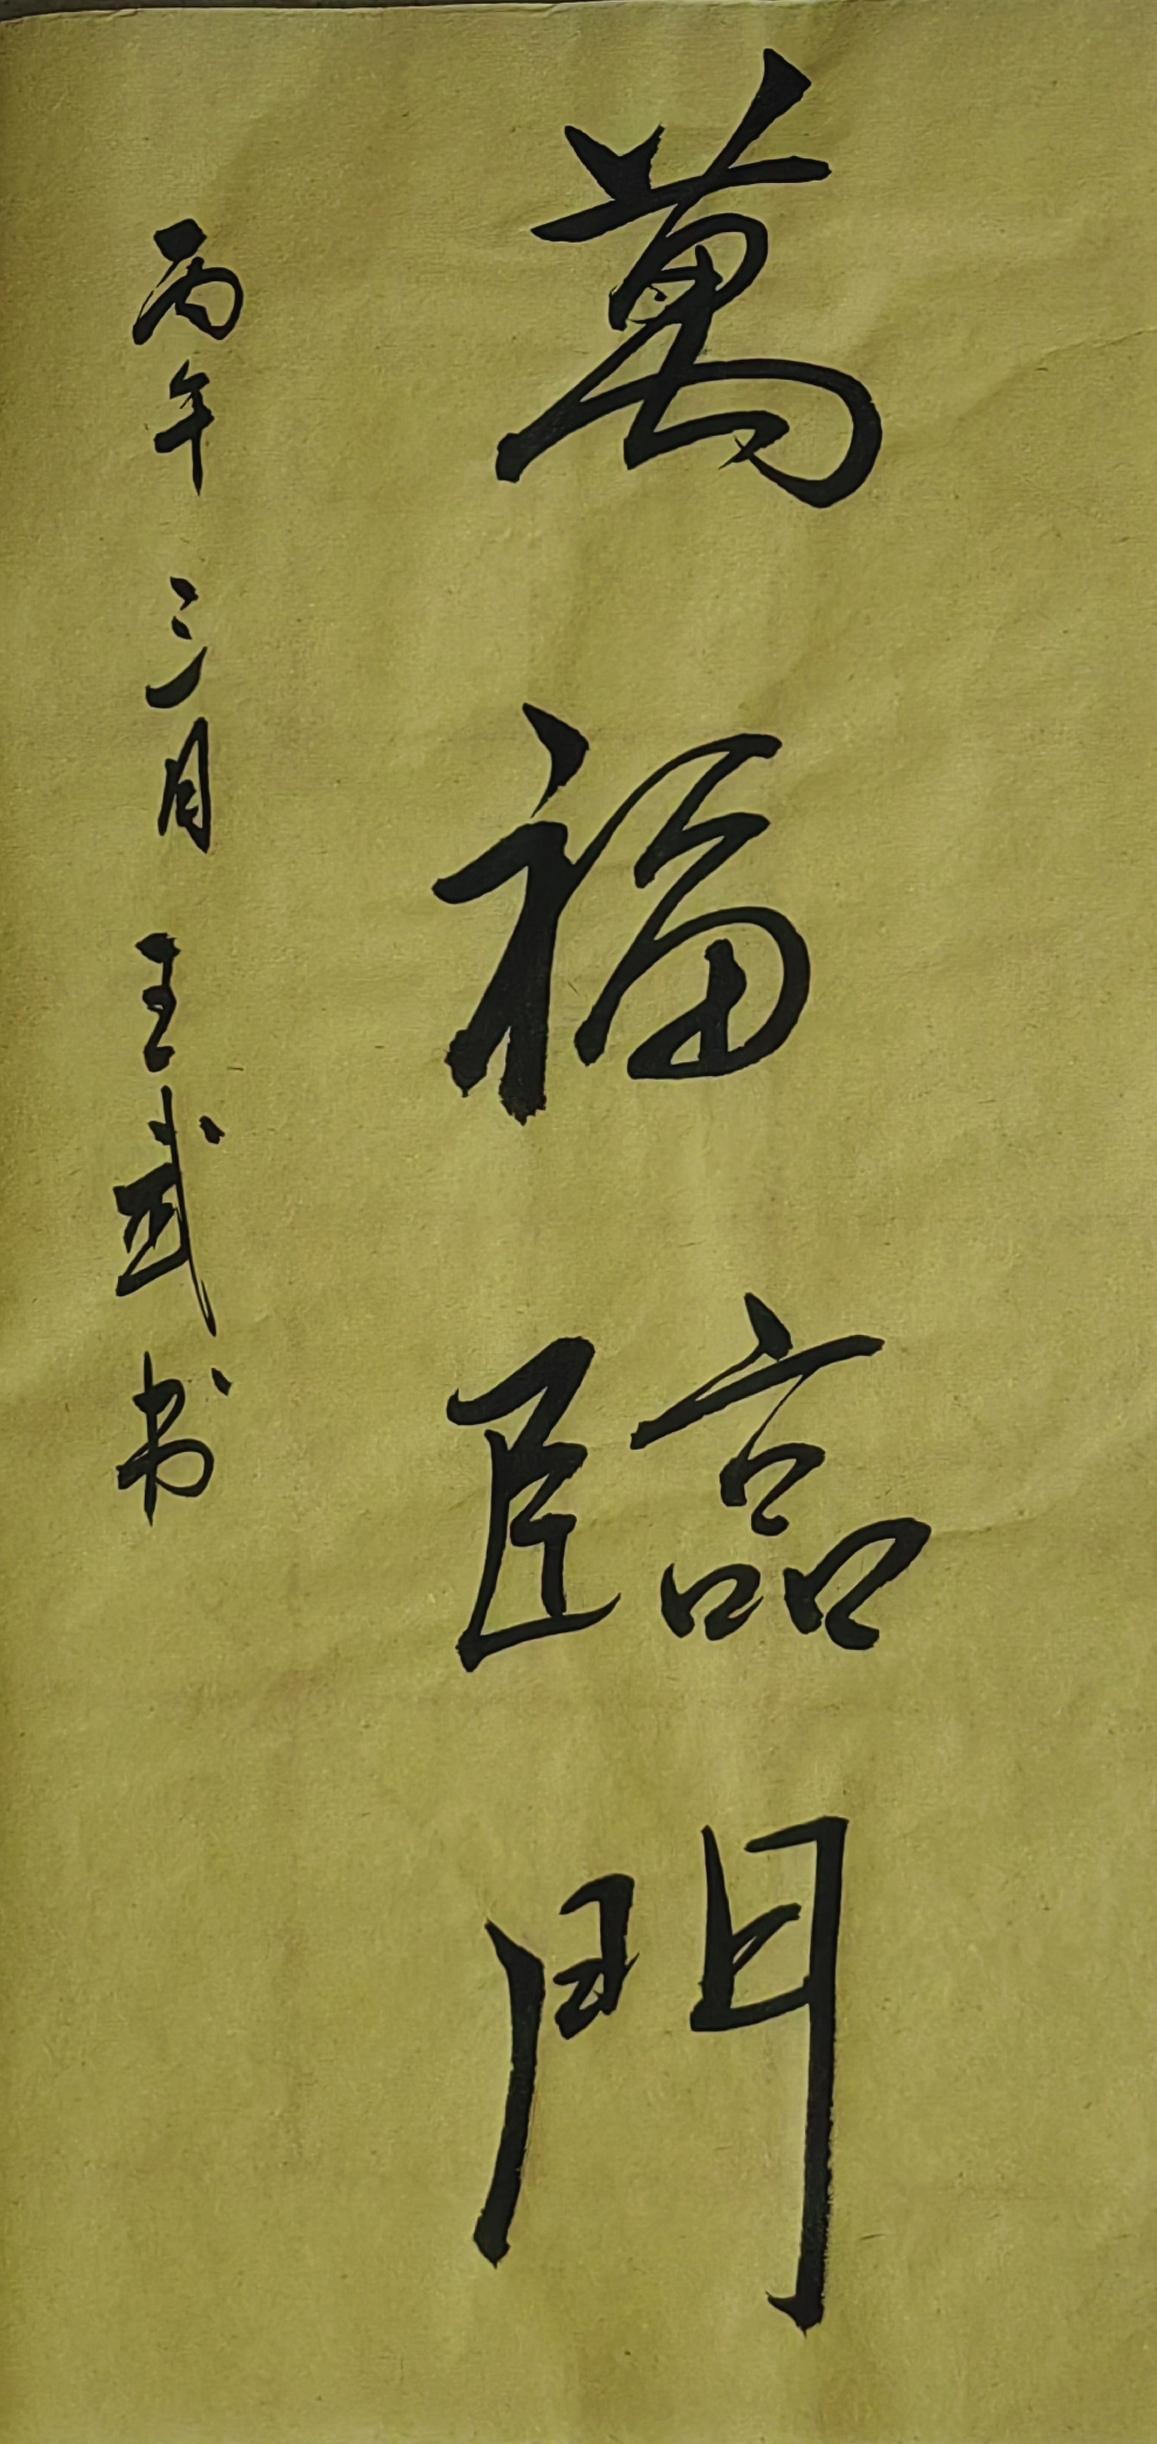 萬福臨門
丙午 三月 王武书